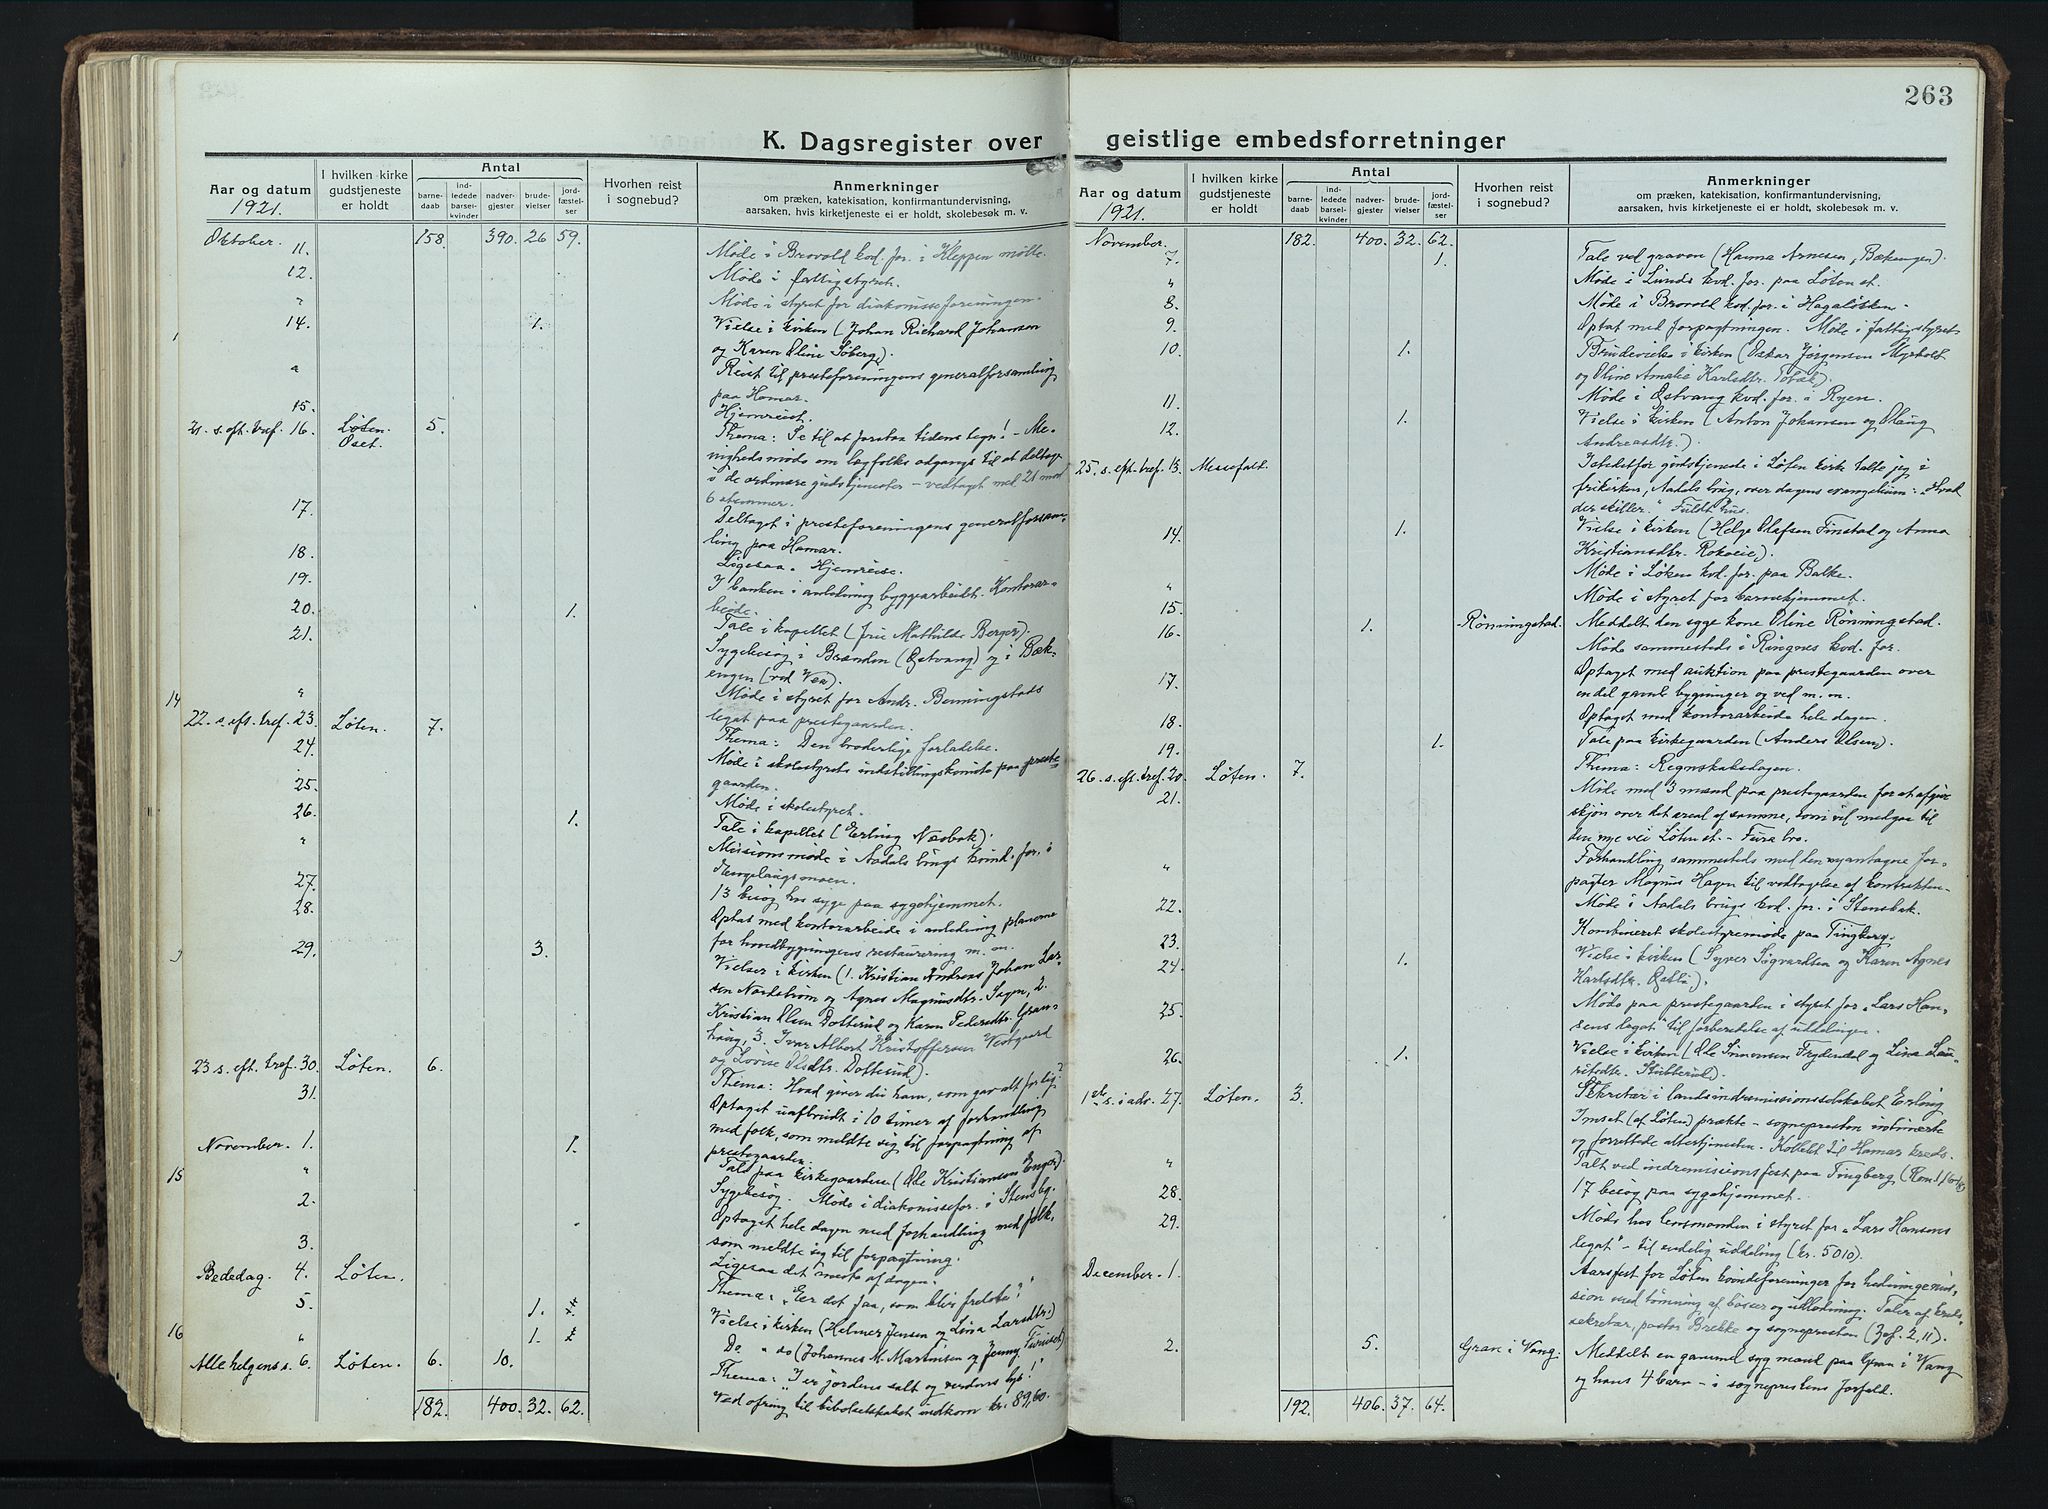 263
K. Dagsregister over geistlige embedsforretninger
Aar og datum
1921.
I hvilken kirke
gudstjeneste
er holdt
Antal
barne-
daab
ind-
ledede
barsel-
kvinder
nadver-
gjester
brude-
vielser
jord-
fæstel-
ser
Hvorhen reist
i sognebud?
Anmerkninger
om præken, katekisation, konfirmantundervisning,
aarsaken, hvis kirketjeneste ei er holdt, skolebesøk m. v.
Oktober. 158. 390. 26 59.
11. Møde i Brovold kvd. for. i Kleppen mølle.
12. Møde i fattigstyret.
" Møde i styret for diakonisseforeningen.
14. 1. Vielse i kirken (Johan Richard Johansen
og Karen Oline Søberg).
" Reist til presteforeningens generalforsamling
paa Hamar.
15. Hjemreist.
21. s. eft. tref. 16. Løten. 5. Thema: Se til at forstaa tidens tegn! - Me-
Oset.
nighedsmøde om lægfolks adgang til at deltage
i de ordinære gudstjenester - vedtaget med 21 mot
6 stemmer.
17. Deltaget i presteforeningens generalforsam-
ling paa Hamar.
18. Ligesaa. Hjemreise.
19. I banken i anledning byggearbeidet. Kontorar-
beide.
20. 1. Tale i kapellet (frue Mathilde Berger).
21. Sygebesøg i Brænden (Østvang) og i Bæk-
engen (ved Vea).
" Møde i styret for Andr. Benningstads
legat paa prestegaarden.
22. s. eft. tref. 23. Løten. 7. Thema: Den broderlige forladelse.
24. Møde i skolestyrets indstillingskomite paa preste-
gaarden.
25. Møde i skolestyret.
26. 1. Tale i kapellet (Erling Næobak).
" Missionsmøde i Aadals brugs kvind. for. i
Hengelaugsmoen.
27. 13 besøg hos syge paa sygehjemmet.
28. Optat med kontorarbeide i anledning planerne
for hovedbygningens restaurering m. m.
29. 3. Vielser i kirken (1. Kristian Andreas Johan Lar-
sen Nordstrøm og Agnes Magnusdtr. Sagen, 2.
Kristian Olsen Dotterud og Karen Pedersdtr. Gran-
haug, 3. Ivar Albert Kristoffersen Vestgaard
og Lovise Olsdtr. Dotterud).
23 s. eft. tref. 30. Løten. 6. Thema: Hvad giver du ham, som gav alt for dig?
31. Optaget uafbrudt i 10 timer af forhandling
med folk, som meldte sig til forpagtning af
prestegaarden.
November. 1. 1. Tale paa kirkegaarden (Ole Kristiansen Enger).
" Sygebesøg. Møde i diakonissefor. i Stensby.
2. Optaget hele dagen med forhandling med folk,
som meldte sig til forpagtning.
3. Ligesaa det meste af dagen.
Bededag. 4. Løten. Thema: "Er det faa, som blir frelste?"
5. 1. Vielse i kirken (Helmer Jensen og Lina Larsdtr.)
" 1. Do " do (Johannes M. Martinsen og Jenny )
Alle helgens s. 6. Løten. 6. 10. Thema: "I er jordens salt og verdens lys!"
Ved ofring til bibelselskabet indkom kr. 89,60.
182. 400. 32. 62.
14
15
16
Aar og datum
1921.
I hvilken kirke
gudstjeneste
er holdt
Antal
barne-
daab
ind-
ledede
barsel-
kvinder
nadver-
gjester
brude-
vielser
jord-
fæstel-
ser
Hvorhen reist
i sognebud?
Anmerkninger
om præken, katekisation, konfirmantundervisning,
aarsaken, hvis kirketjeneste ei er holdt, skolebesøk m. v.
November. 182. 400. 32. 62.
7. 1. Tale ved graven (Hanna Arnesen, Bækengen).
" Møde i Lunds kvd. for. paa Løten st.
8. Møde i Brovold kvd. for. i Hagaløkken.
9. Optat med forpagtningen. Møde i fattigstyret.
10. 1. Brudevielse i kirken (Oskar Jørgensen Myrholt
og Oline Amalie Karlsdtr. ).
11. Møde i Østvang kvd. for. i Ryen.
12. 1. Vielse i kirken (Anton Johansen og Olaug
Andreasdtr.).
25. s. eft. tref. 13. Messefald. Istedetfor gudstjeneste i Løten kirke talte jeg i
frikirken, Aadals brug, over dagens evangelium: "Hvad
der skiller." Fuldt hus.
14. 1. Vielse i kirken (Helge Olafsen Finstad og Anna
Kristiansdtr. Rokoeie).
Møde i Løken kvd. for. paa Balke.
" Møde i styret for barnehjemmet.
15.
16. 1. Rønningstad. Meddelt den syge kone Oline Rønningstad.
Møde sammesteds i Ringnes kvd. for.
17. Optaget med auktion paa prestegaarden over
endel gamle bygninger og ved m. m.
18. Optaget med kontorarbeide hele dagen.
19. 1. Tale paa kirkegaarden (Anders Olsen).
26. s. eft. tref. 20. Løten. 7. Thema: Regnskabsdagen.
21. Møde med 3 mænd paa prestegaarden for at afgive
skjøn over det areal af samme, som vil medgaa til
den nye vei Løten st. - Fura bro.
" Forhandling sammesteds med den nyantagne for-
pagter Magnus Hagen til vedtagelse af kontrakten.
22. Møde i Aadals brugs kvd. for. i Stensbak.
23. Kombineret skolestyremøde paa Tingberg.
24. 1. Vielse i kirken (Syver Sigvardsen og Karen Agnes
Karlsdtr. ).
25. Møde paa prestegaarden i styret for "Lars Han-
sens legat" til forberedelse af uddelingen.
26. 1. Vielse i kirken (Ole Simensen Frydendal og Lina Lau-
ritsdtr. Stubberud).
1ste s. i adv. 27. Løten. 3. Sekretær i landsindremissionsselskabet Erling
Imset (af Løten) prækte - sognepresten intimerte
og forrettede altertjenesten. Kollekt til Hamar kreds.
" Talt ved indremissionsfest paa Tingberg (Rom. 1, 16).
28. 17 besøg paa sygehjemmet.
29. Møde hos lensmanden i styret for "Lars Hansens
legat" - til endelig uddeling (kr. 5010).
December. 1. Aarsfest for Løten kvindeforeninger for hedningemis-
sion med tømning af bøsser og utlodning. Taler af kreds-
sekretær, pastor Brekke og sognepresten (Zef. 2, 11).
2. 5. Gran i Vang. Meddelt en gammel syg mand paa Gran i Vang
og hans 4 barn - i sogneprestens forfald.
192. 406. 37. 64.